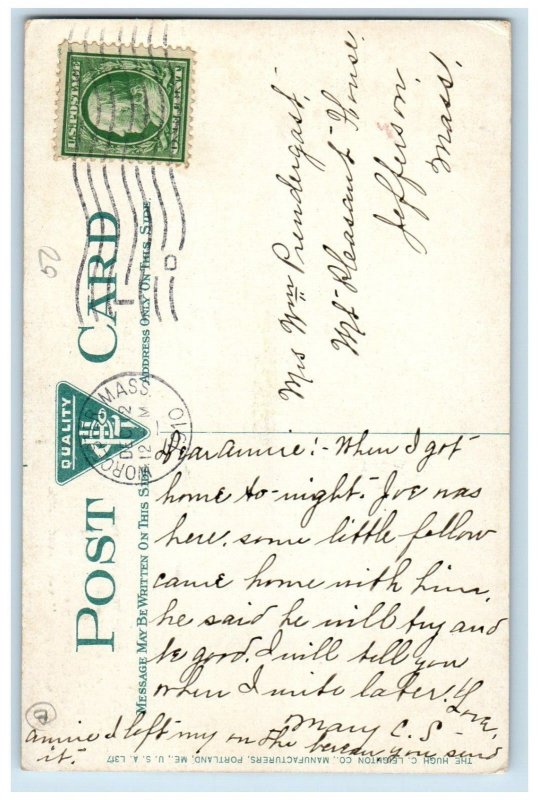 POST CARD
QUALITY
MESSAGE MAY BE WRITTEN ON THIS SIDE
ADDRESS ONLY ON THIS SIDE.
U.S. POSTAGE
MASS.
DEC 2
12 M
1910
Mrs Wm Prendergast,
Mt Pleasant House
Jefferson
Mass.
Dear Annie:- When I got
home to-night. Joe was
here. some little fellow
came home with him,
he said he will try and
be good. I will tell you
when I write later.
Love,
Mary C. S
Annie I left my on the bureau you send
it.
THE HUGH C. LEIGHTON CO., MANUFACTURERS, PORTLAND, ME., U. S. A. L317
50